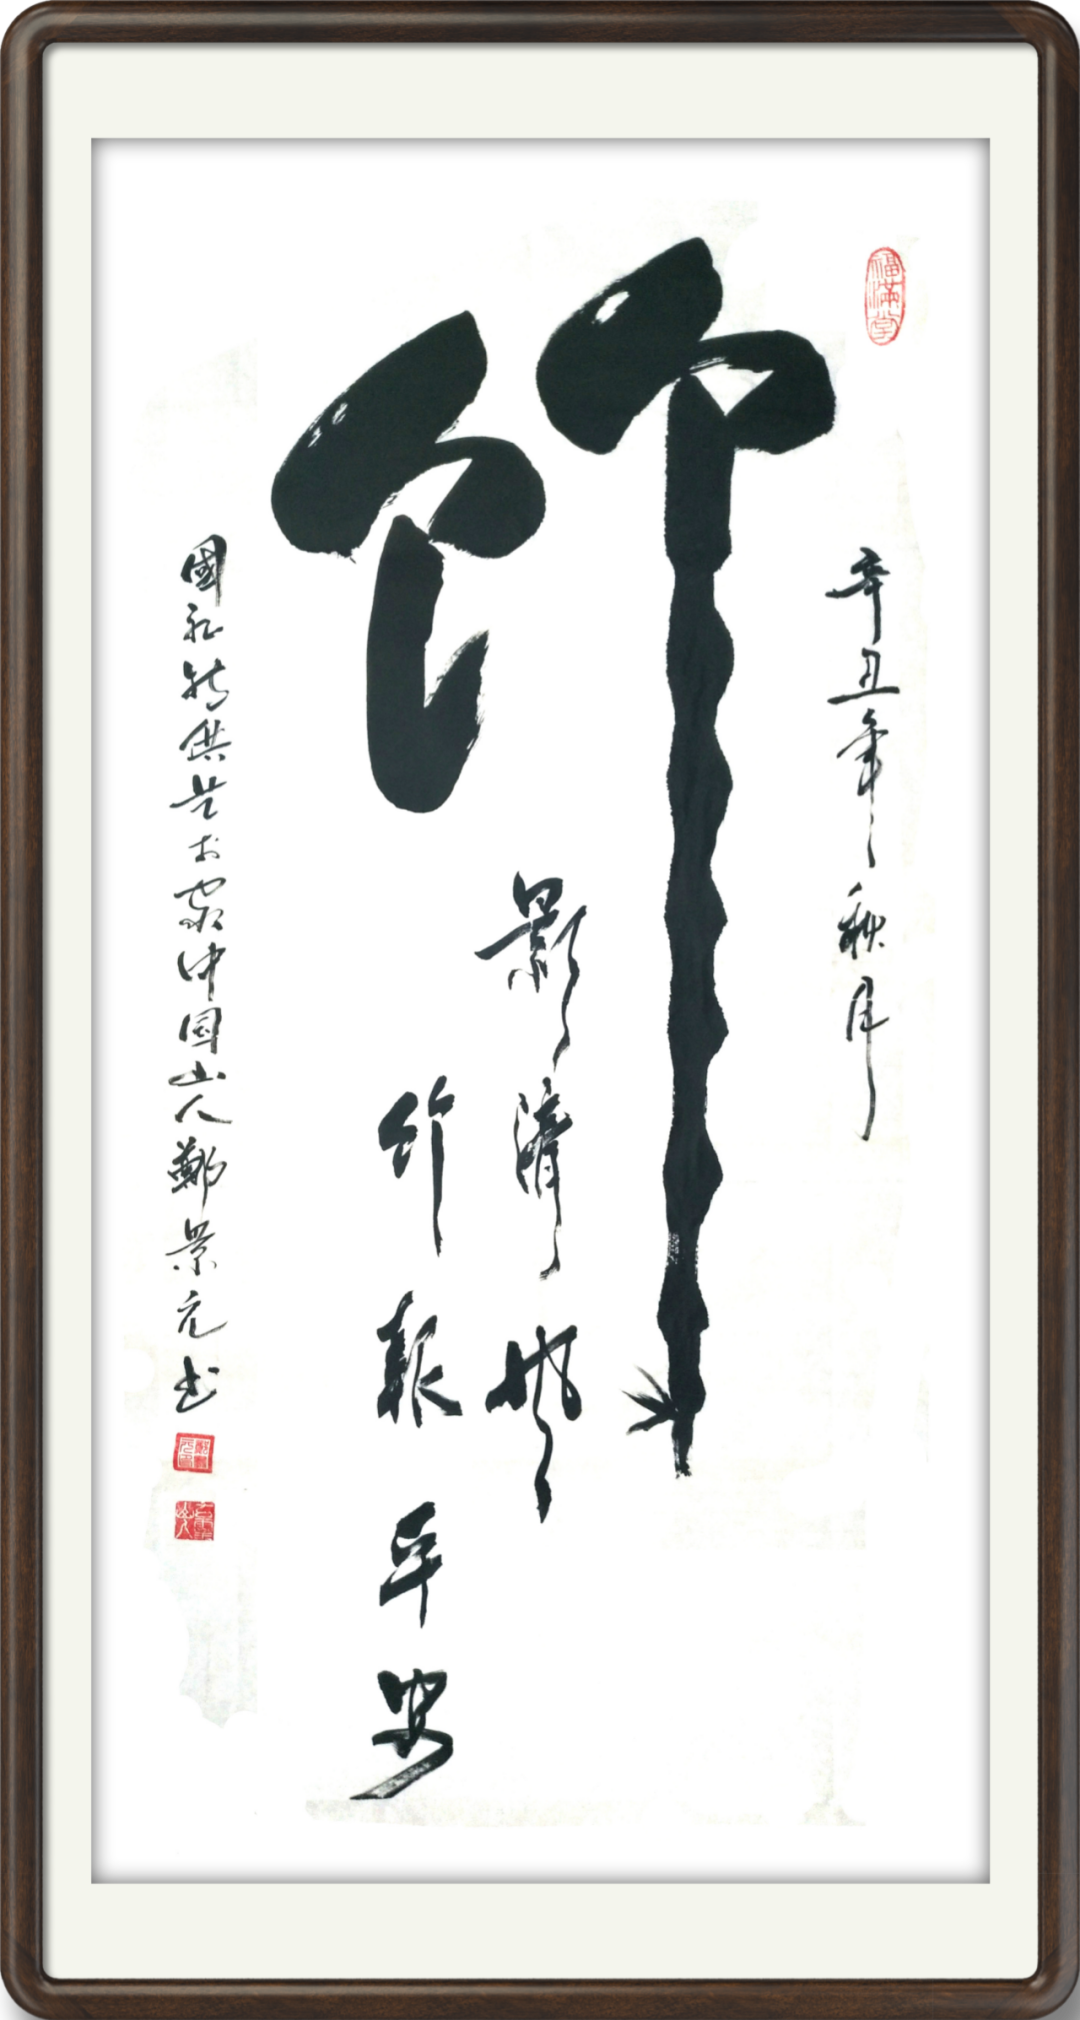 福满堂
辛丑年秋月
竹
影清风
竹报平安
國礼特供艺术家中国山人鄭景元书